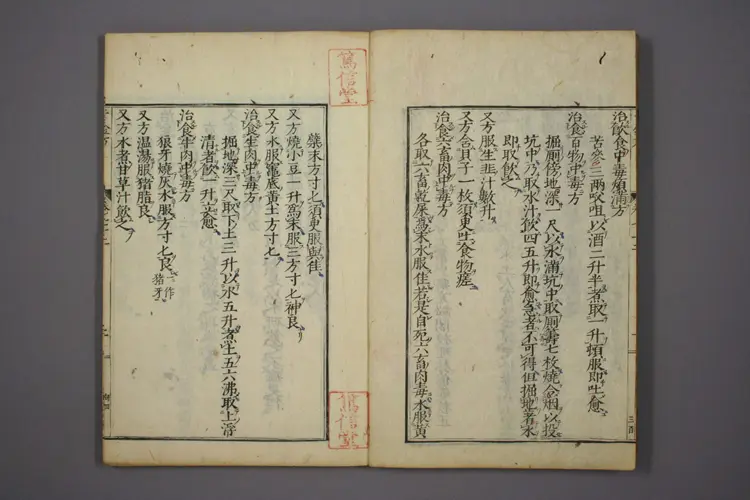 治飲食中毒煩滿方
苦參三兩㕮咀以酒二升半煮取一升頓服即吐愈
治食百物中毒方
掘厠傍地深一尺以水滿坑中取厠籌七枚燒令烟以投
坑中乃取水汁飲四五升即愈急者不可得但掘地著水
即取飲之
又方服生韭汁數升
又方含貝子一枚須臾吐食物瘥
治食六畜肉中毒方
各取六畜乾屎爲末水服佳若是自死六畜肉毒水服黃
蘗末方寸七須更服彌佳
又方燒小豆一升爲末服三方寸七神良
又方水服竈底黃土方寸七
治食生肉中毒方
掘地深三尺取下土三升以水五升煮土五六沸取上
清者飲一升立愈
治食牛肉中毒方
狼牙燒灰水服方寸七良一作猪牙
又方溫湯服猪脂良
又方水煮甘草汁飲之
篤信堂
篤信堂